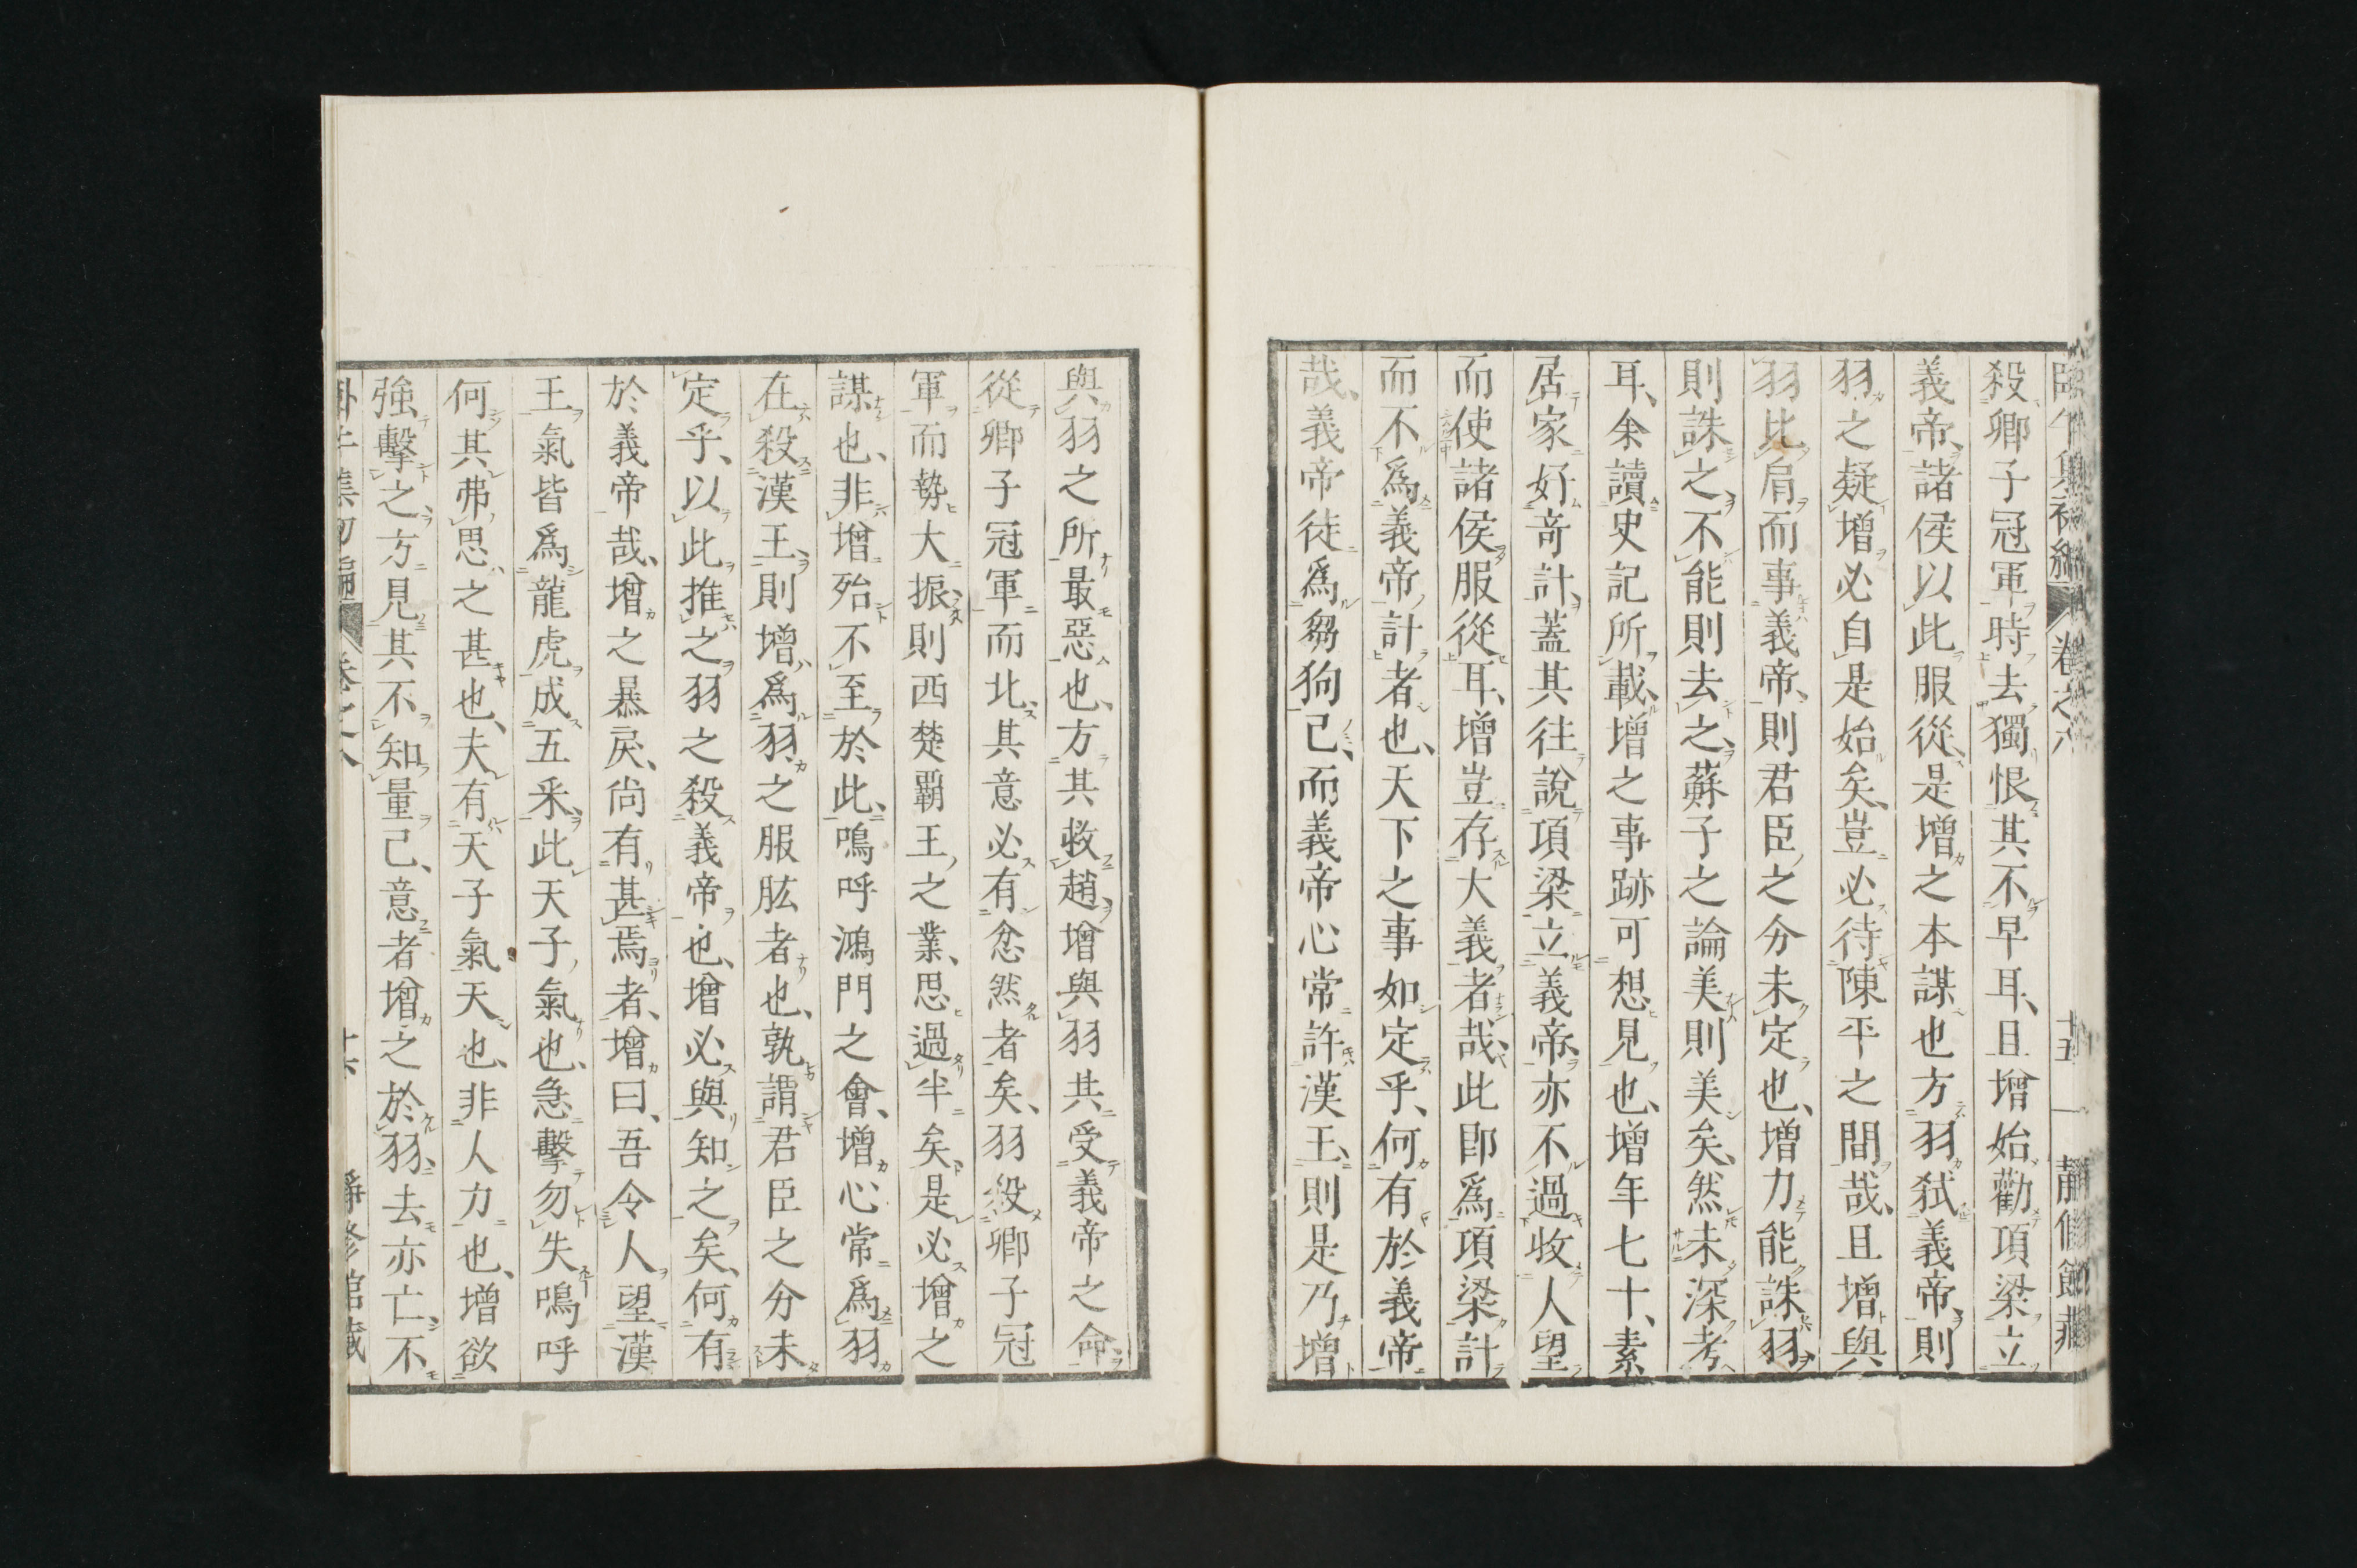 殺卿子冠軍時去獨恨其不早耳、且增始勸項梁立
義帝、諸侯以此服從、是增之本謀也方羽弑義帝、則
羽之疑增必自是始矣、豈必待陳平之間哉、且增與
羽比肩而事義帝、則君臣之分未定也、增力能誅羽
則誅之、不能則去之、蘇子之論美則美矣、然未深考
耳、余讀史記所載、增之事跡可想見也、增年七十、素
居家好奇計、蓋其往說項梁立義帝、亦不過收人望
而使諸侯服從耳、增豈存大義者哉、此卽爲項梁計
而不爲義帝計者也、天下之事如定乎、何有於義帝
哉、義帝徒爲芻狗已、而義帝心常許漢王、則是乃增
與羽之所最惡也、方其救趙、增與羽共受義帝之命
從卿子冠軍而北、其意必有忿然者矣、羽殺卿子冠
軍而勢大振、則西楚覇王之業、思過半矣、是必增之
謀也、非增殆不至於此、嗚呼鴻門之會、增心常爲羽
在殺漢王、則增爲羽之服肱者也、孰謂君臣之分未
定乎、以此推之、羽之殺義帝也、增必與知之矣、何有
於義帝哉、增之暴戾、尚有甚焉者、增曰、吾令人望漢
王氣皆爲龍虎成五采、此天子氣也、急擊勿失嗚呼
何其弗思之甚也、夫有天子氣天也、非人力也、增欲
強擊之、方見其不知量己、意者增之於羽、去亦亡、不